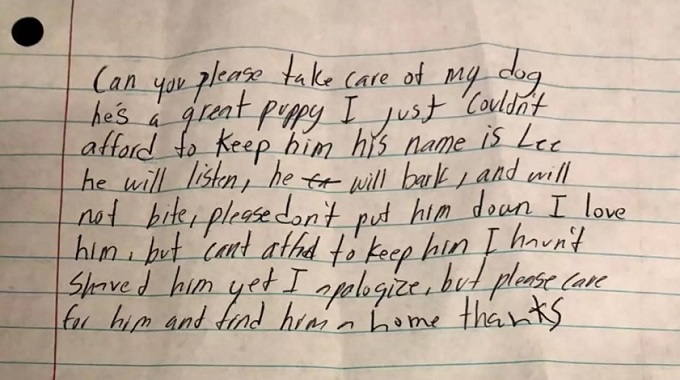 Can you please take care of my dog
he's a great puppy I just Couldn't
afford to keep him his name is Lee
he will listen, he will bark, and will
not bite, please don't put him down I love
him, but cant affrd to keep him I havn't
Shaved him yet I apologize, but please care
for him and find him a home thanks